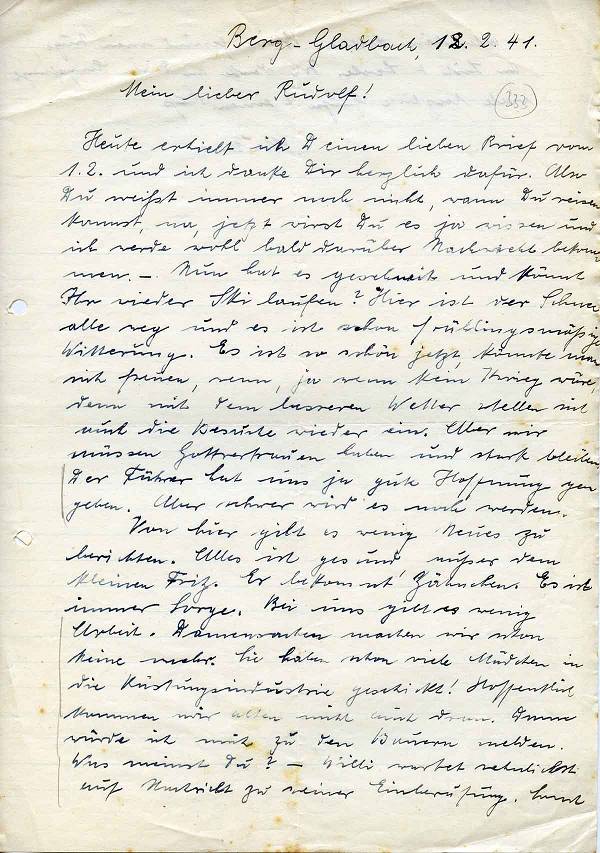 Berg-Gladbach, 12. 2. 41.
333
Mein lieber Rudolf!
Heute erhielt ich Deinen lieben Brief vom
1.2. und ich danke Dir herzlich dafür. Also
Du weißt immer noch nicht, wann Du reisen
kannst, na, jetzt wirst Du es ja wissen und
ich werde wohl bald darüber Nachricht bekom-
men. – Nun hat es geschneit und könnt
Ihr wieder Ski laufen? Hier ist der Schnee
alle weg und es ist schon frühlingsmäßige
Witterung. Es ist so schön jetzt, könnte man
sich freuen, wenn, ja wenn kein Krieg wäre,
denn mit dem besseren Wetter stellen sich
auch die Besuche wieder ein. Aber wir
müssen Gottvertrauen haben und stark bleiben.
Der Führer hat uns ja gute Hoffnung gege
geben. Aber schwer wird es noch werden.
Von hier gibt es wenig Neues zu
berichten. Alles ist gesund außer dem
kleinen Fritz. Er bekommt Zähnchen. Es ist
immer Sorge. Bei uns gibt es wenig
Arbeit. Damensachen machen wir schon
keine mehr. Sie haben schon viele Mädchen in
die Rüstungsindustrie geschickt! Hoffentlich
kommen wir alten nicht auch dran. Dann
würde ich mich zu den Bauern melden.
Was meinst Du? – Willi wartet sehnlichst
auf Nachricht zu seiner Einberufung. Sonst